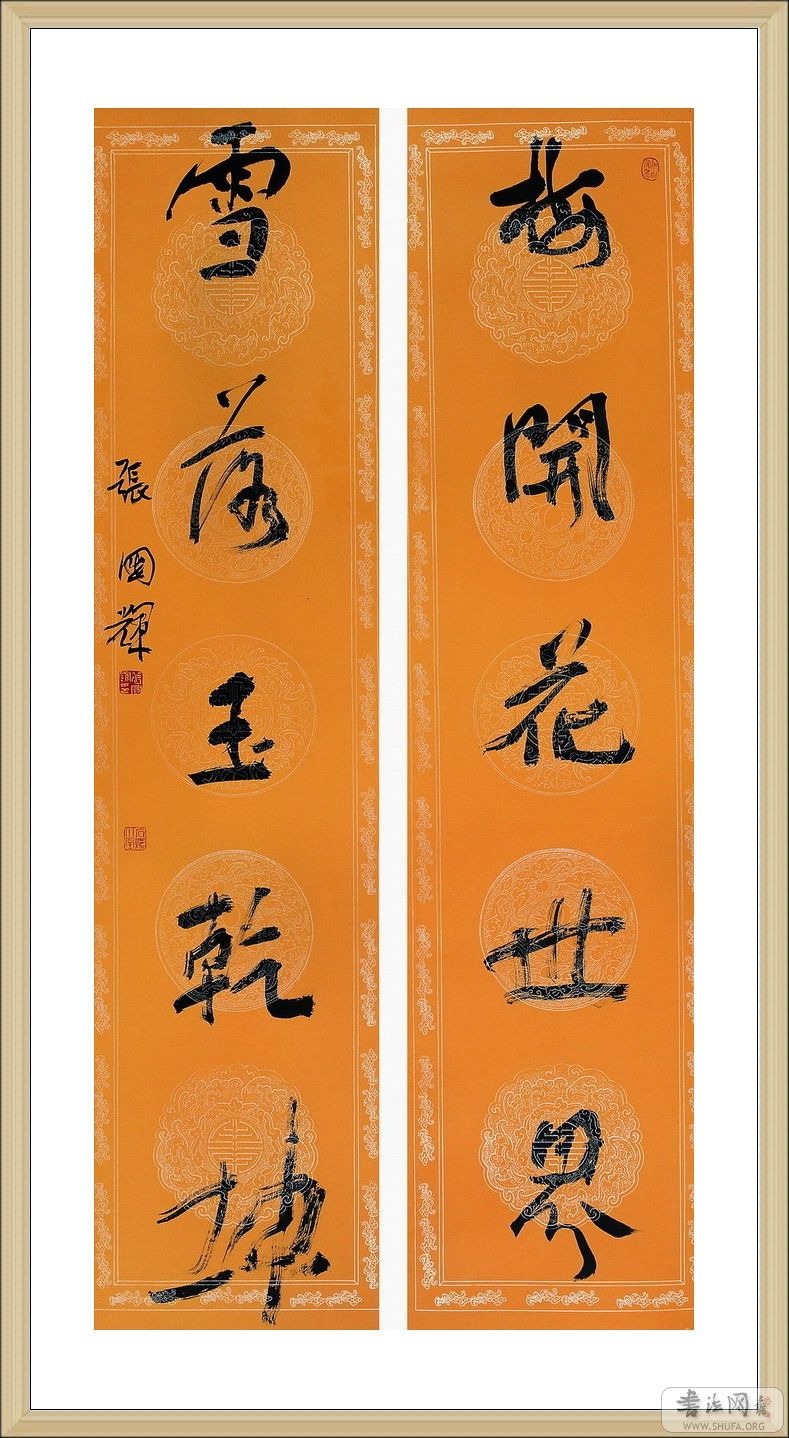 梅開花世界
雪落玉乾坤
張國輝
書法网
WWW.SHUFA.ORG